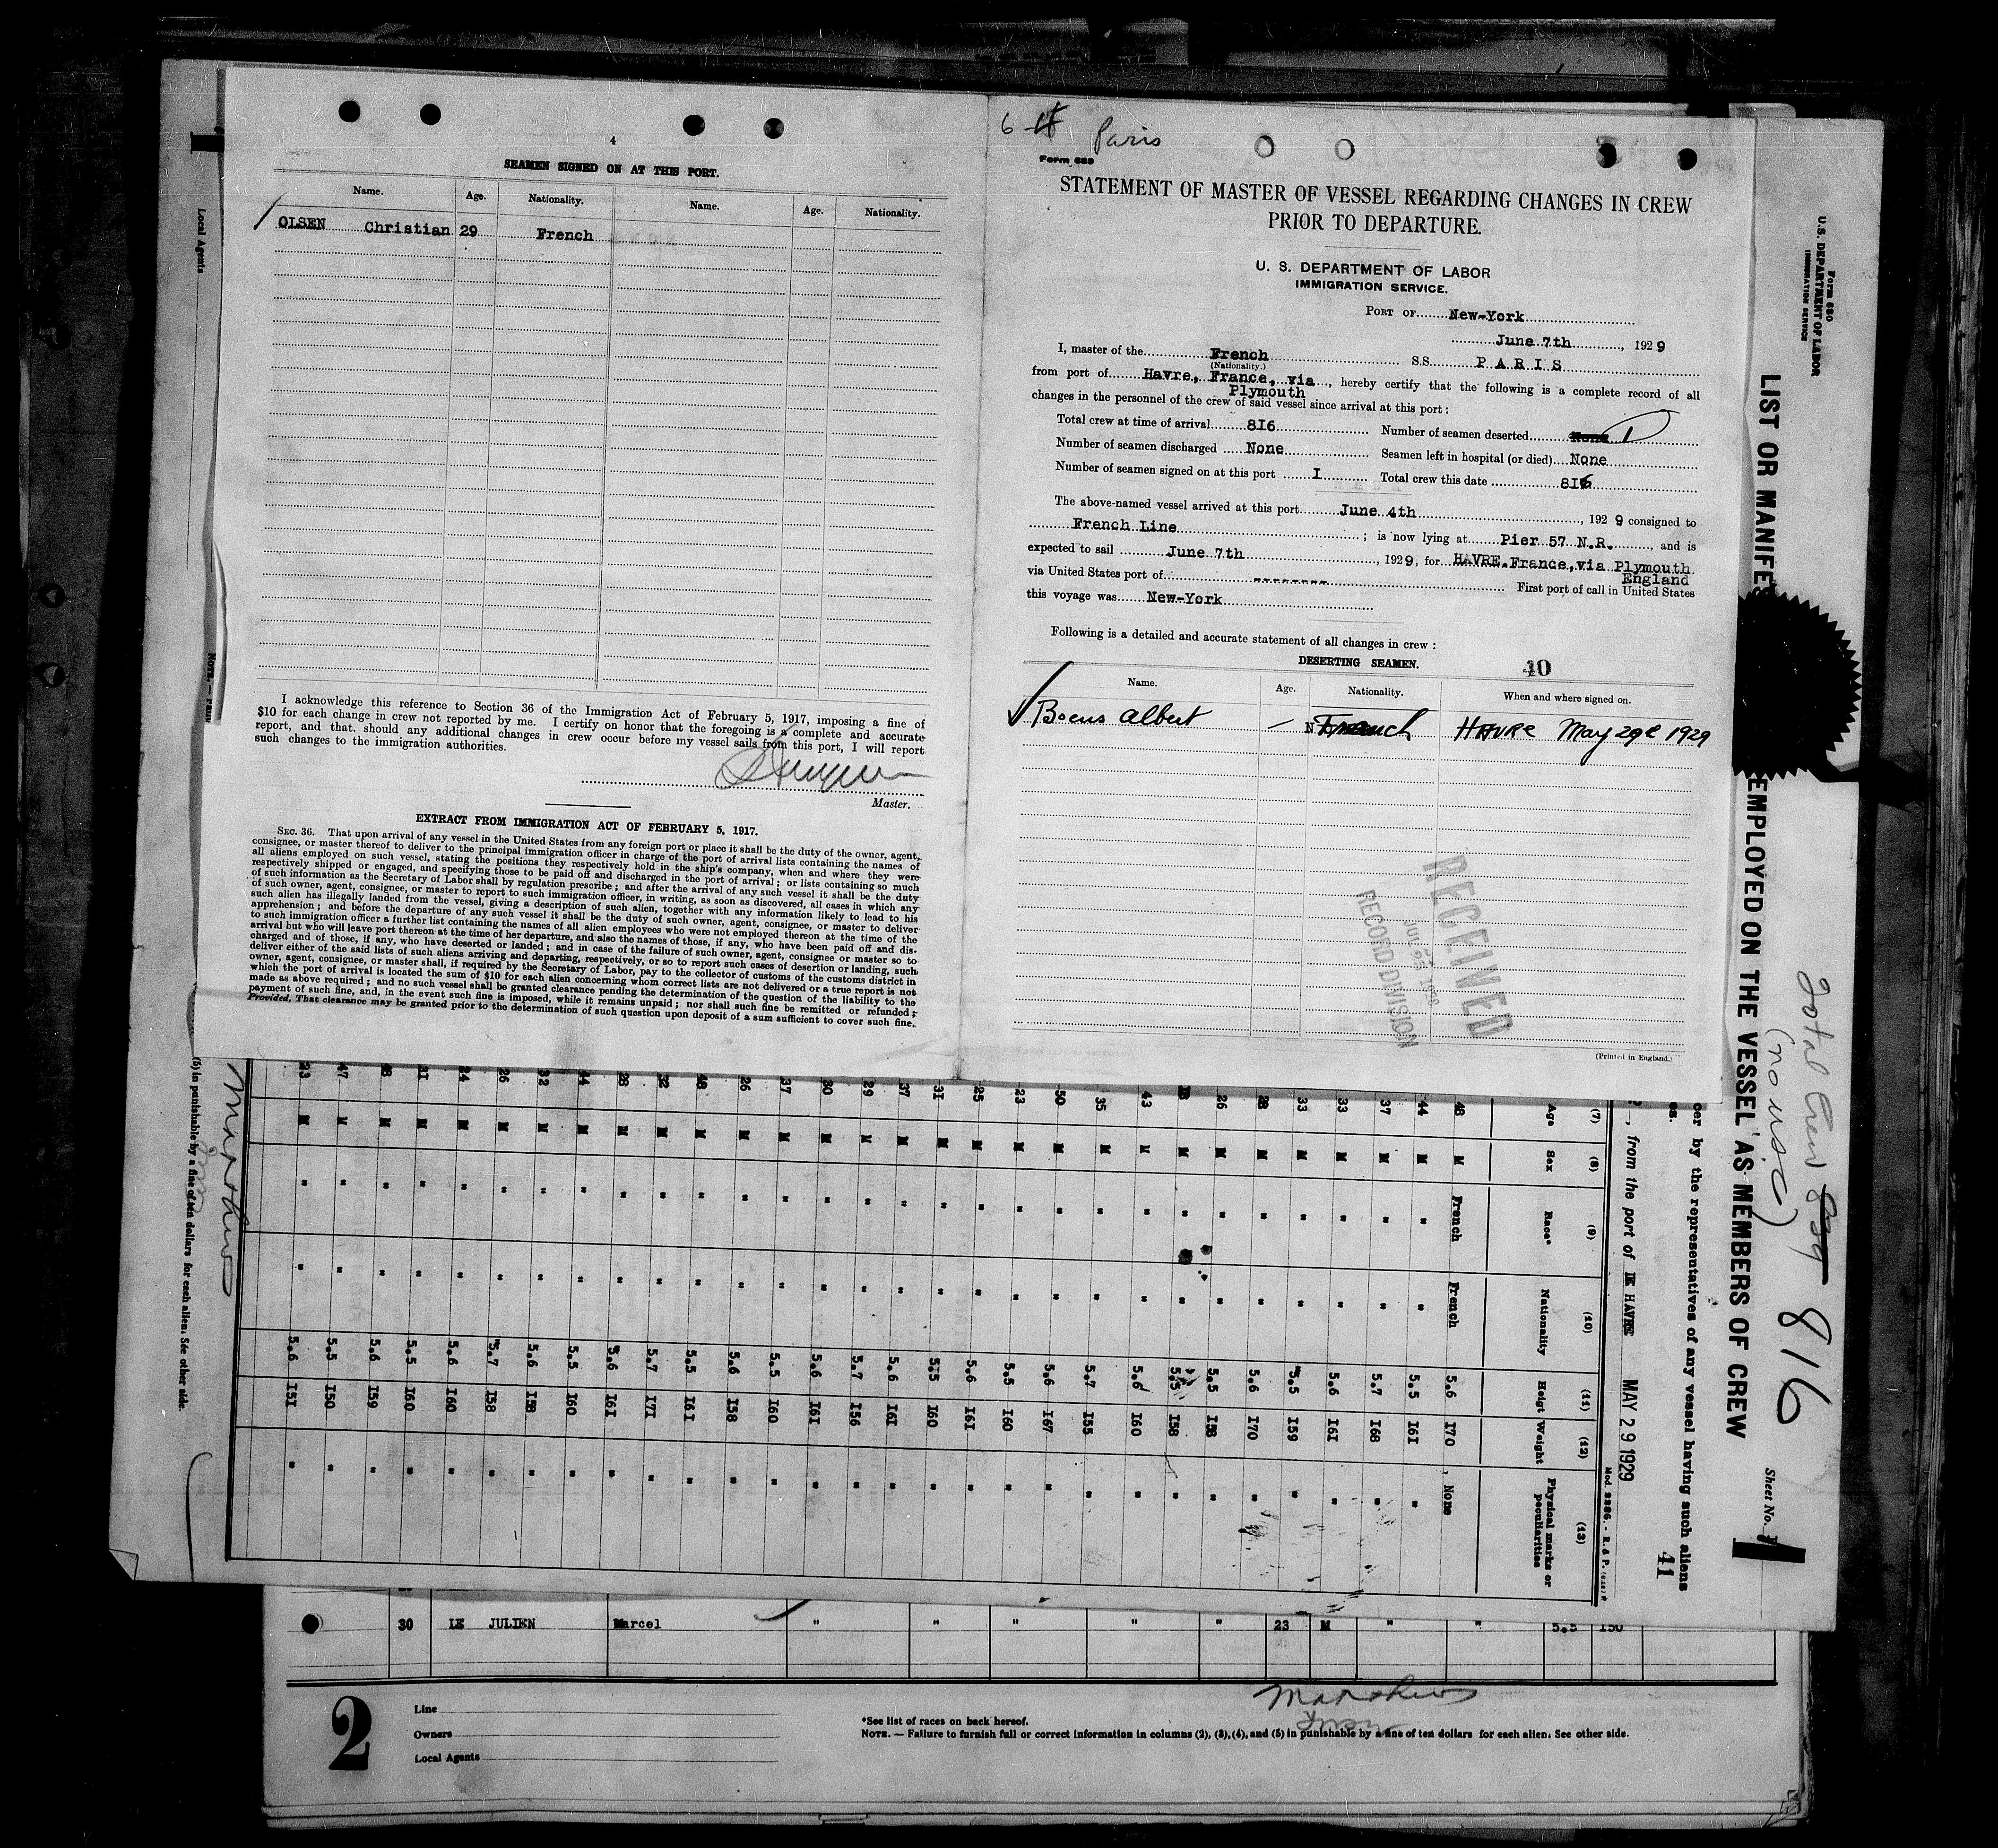 4
SEAMEN SIGNED ON AT THIS PORT.
Name. Age. Nationality. Name. Age. Nationality.
OLSEN Christian 29 French
I acknowledge this reference to Section 36 of the Immigration Act of February 5, 1917, imposing a fine of
$10 for each change in crew not reported by me. I certify on honor that the foregoing is a complete and accurate
report, and that, should any additional changes in crew occur before my vessel sails from this port, I will report
such changes to the immigration authorities.
Master.
EXTRACT FROM IMMIGRATION ACT OF FEBRUARY 5, 1917.
SEC. 36. That upon arrival of any vessel in the United States from any foreign port or place it shall be the duty of the owner, agent,
consignee, or master thereof to deliver to the principal immigration officer in charge of the port of arrival lists containing the names of
all aliens employed on such vessel, stating the positions they respectively hold in the ship's company, when and where they were
respectively shipped or engaged, and specifying those to be paid off and discharged in the port of arrival; or lists containing so much
of such information as the Secretary of Labor shall by regulation prescribe; and after the arrival of any such vessel it shall be the duty
of such owner, agent, consignee, or master to report to such immigration officer, in writing, as soon as discovered, all cases in which any
such alien has illegally landed from the vessel, giving a description of such alien, together with any information likely to lead to his
apprehension; and before the departure of any such vessel it shall be the duty of such owner, agent, consignee, or master to deliver
to such immigration officer a further list containing the names of all alien employees who were not employed thereon at the time of the
arrival but who will leave port thereon at the time of her departure, and also the names of those, if any, who have been paid off and dis-
charged and of those, if any, who have deserted or landed; and in case of the failure of such owner, agent, consignee or master so to
deliver either of the said lists of such aliens arriving and departing, respectively, or so to report such cases of desertion or landing, such
owner, agent, consignee, or master shall, if required by the Secretary of Labor, pay to the collector of customs of the customs district in
which the port of arrival is located the sum of $10 for each alien concerning whom correct lists are not delivered or a true report is not
made as above required; and no such vessel shall be granted clearance pending the determination of the question of the liability to the
payment of such fine, and, in the event such fine is imposed, while it remains unpaid; nor shall such fine be remitted or refunded:
Provided, That clearance may be granted prior to the determination of such question upon deposit of a sum sufficient to cover such fine.
6-4 Paris
Form 689
STATEMENT OF MASTER OF VESSEL REGARDING CHANGES IN CREW
PRIOR TO DEPARTURE.
U. S. DEPARTMENT OF LABOR
IMMIGRATION SERVICE.
PORT OF New-York
June 7th, 1929
I, master of the French S.S. PARIS
(Nationality.)
from port of Havre, France, via Plymouth, hereby certify that the following is a complete record of all
changes in the personnel of the crew of said vessel since arrival at this port:
Total crew at time of arrival 8I6 Number of seamen deserted None 1
Number of seamen discharged None Seamen left in hospital (or died) None
Number of seamen signed on at this port I Total crew this date 816
The above-named vessel arrived at this port June 4th, 1929 consigned to
French Line; is now lying at Pier 57 N.R., and is
expected to sail June 7th, 1929, for HAVRE.France,via Plymouth
England
via United States port of -------- First port of call in United States
this voyage was New-York
Following is a detailed and accurate statement of all changes in crew:
DESERTING SEAMEN. 40
Name. Age. Nationality. When and where signed on.
Bocus Albert — French HAVRE May 29e 1929
RECEIVED
RECORD DIVISION
(Printed in England.)
Form 680
U.S. DEPARTMENT OF LABOR
IMMIGRATION SERVICE
LIST OR MANIFES
EMPLOYED ON THE VESSEL AS MEMBERS OF CREW
Total Crew 816
(no usc)
Sheet No. 1
cer by the representatives of any vessel having such aliens
41
es.
, from the port of LE HAVRE MAY 29 1929
(7) (8) (9) (10) (11) (12) (13)
Age Sex Race* Nationality Heigt Weight Physical marks or peculiarities
48 M French French 5.6 I70 None
44 M " " 5.5 I6I "
37 M " " 5.7 I68 "
33 M " " 5.6 I6I "
33 M " " 5.5 I59 "
28 M " " 5.6 I70 "
26 M " " 5.5 I58 "
M " " 5.5 I58 "
43 M " " 5.6 I60 "
35 M " " 5.7 I55 "
50 M " " 5.6 I67 "
23 M " " 5.5 I60 "
25 M " " 5.6 I6I "
3I M " " 5.5 I60 "
37 M " " 5.6 I6I "
29 M " " 5.7 I56 "
30 M " " 5.6 I6I "
37 M " " 5.5 I60 "
26 M " " 5.6 I58 "
48 M " " 5.5 I6I "
32 M " " 5.7 I7I "
28 M " " 5.6 I6I "
44 M " " 5.5 I60 "
32 M " " 5.6 I58 "
26 M " " 5.7 I58 "
24 M " " 5.6 I60 "
3I M " " 5.5 I60 "
M " " 5.6 I59 "
47 M " " 5.5 I50 "
23 M " " 5.6 I5I "
Local Agents
(5) in punishable by a fine of ten dollars for each alien. See other side.
Matthews
30 LE JULIEN Marcel " " " " " 23 M " " 5.5 I50
2
Line
Owners
Local Agents
Matthews
*See list of races on back hereof.
NOTE. — Failure to furnish full or correct information in columns (2), (3), (4), and (5) in punishable by a fine of ten dollars for each alien. See other side.